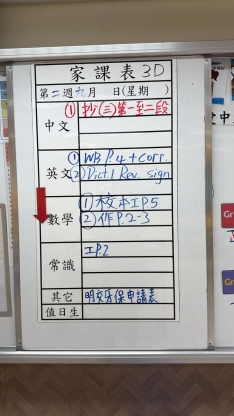 家課表3D
第二週九月 日(星期 )
中文 ① 抄(三)第一至二段
英文 ① WB P.4 + corr.
② Dict 1 Rev. sign
數學 ① 校本工P.5
② 作P.2-3
常識 工P.2
其它 明交牙保申請表
值日生
Gr